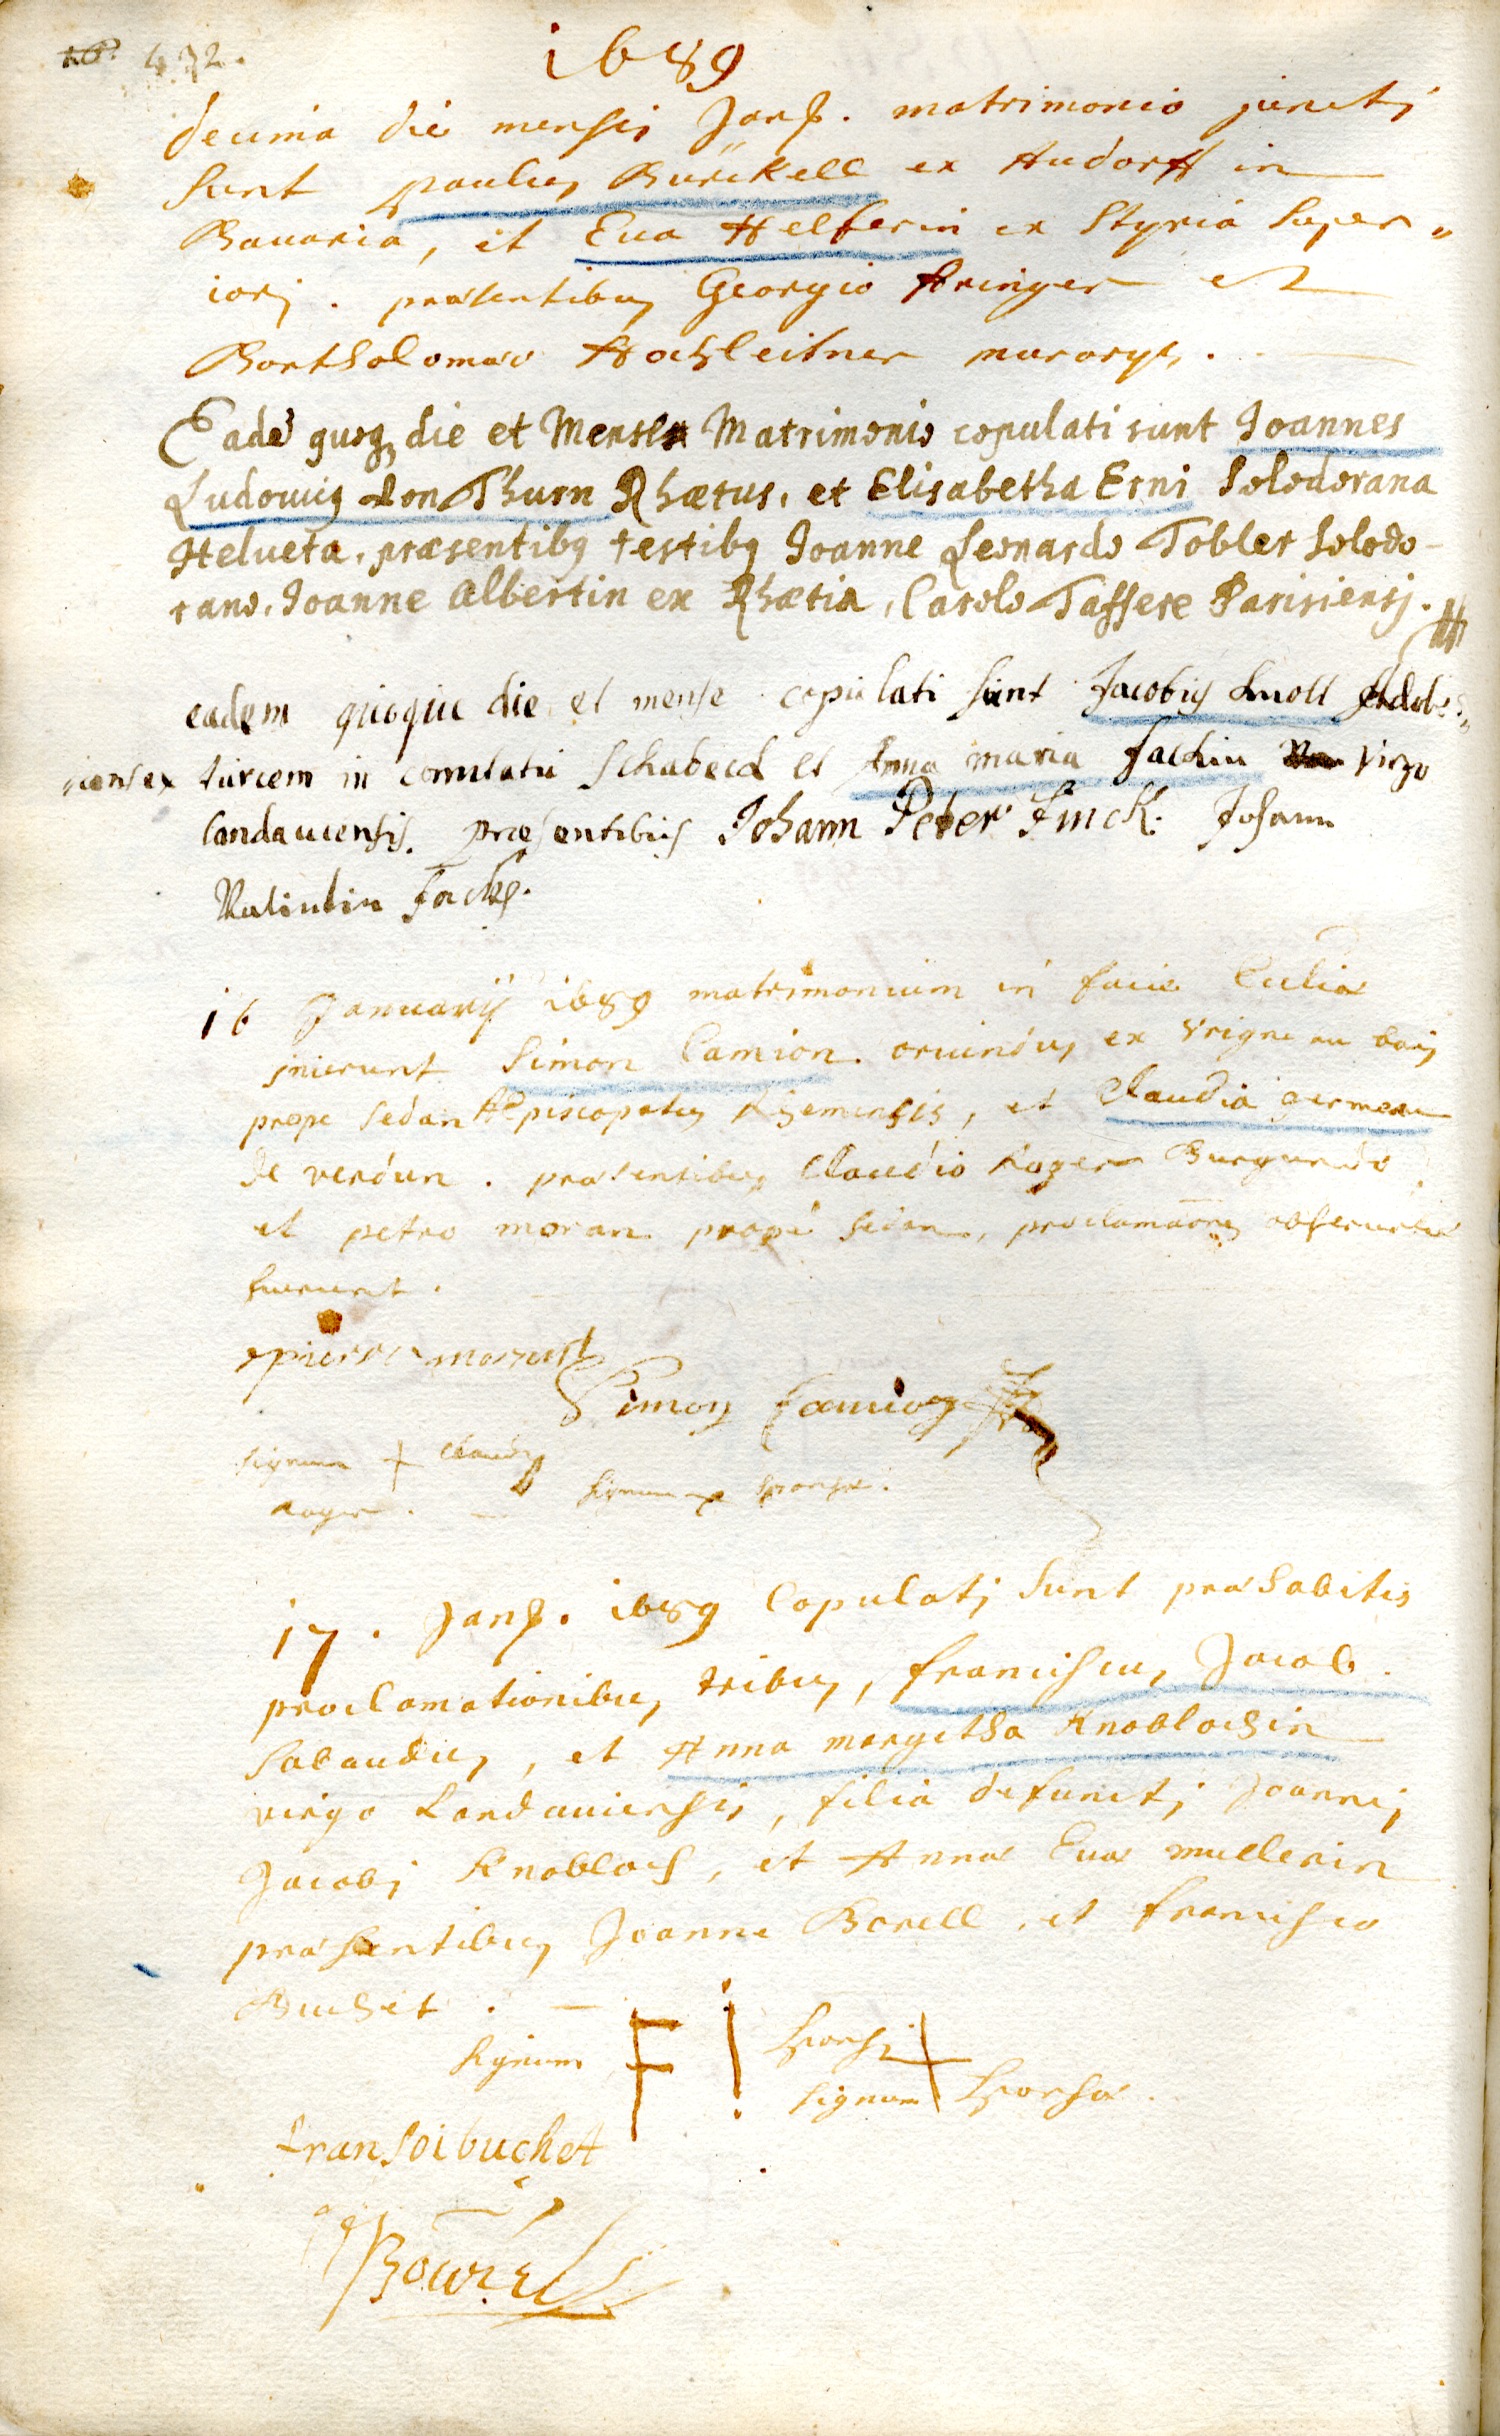 472.
1689
decima die mensis Janr. matrimonio juncti
sunt paulus Bürckell ex Audorff in
Bavaria, et Eva Helferin ex Styria super„
iori. præsentibus Georgio Aringer et
Bartholomæo Hochleitner murarys.
Eadē quoq die et Mense Matrimonio copulati sunt Joannes
Ludovicq Von Thurn Rhætus, et Elisabetha Erni Solodorana
Helveta, præsentibq testibq Joanne Leonardo Tobler Solodo-
rano, Joanne Albertin ex Rhætia, Carolo Taffere Parisiensj.
eadem quoque die et mense copulati sunt Jacobus Knoll
turcem in comitatu et Anna maria Fackin virgo
landaviensis. præsentibus Johann Peter Finck. Johann
Valentin Fack.
16 Januarij 1689 matrimonium in facie Ecclæ
inierunt Simon Camion oriundus ex Vrigne au bois
prope sedan Aepiscopatus Rhemensis, et Claudia germeau
de verdun. præsentibus Claudio Roger Burgundo
et petro moran propè sedan, proclamaōnes observatæ
fuerunt.
pierre
Simon Camion
signum + Claudij
Roger. signum + sponsæ.
17. Janr. 1689 Copulati sunt præhabitis
proclamationibus tribus, franciscus Jacob
Sabaudus, et Anna margetha Knoblochin
virgo Landaviensis, filia defuncti Joannis
Jacobi Knobloch, et Annæ Evæ mullerin
præsentibus Joanne Borell, et francisco
Buchet.
signum F I sponsi
signum + sponsæ.
fransoi buchet
Bourel